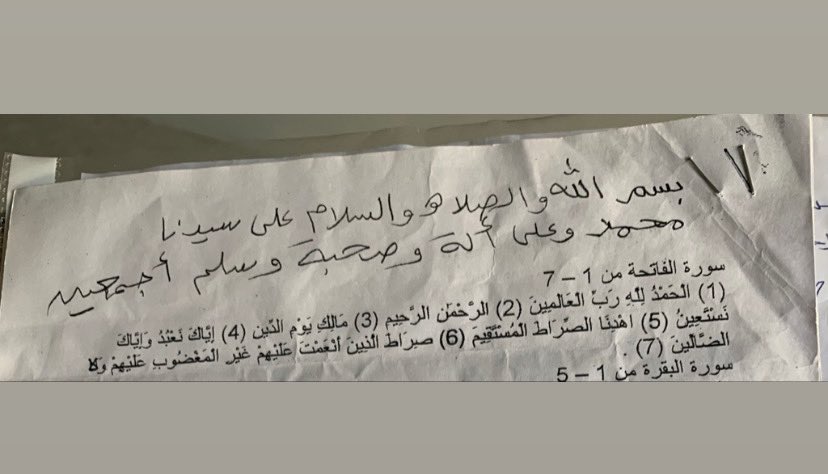 بسم الله والصلاه والسلام على سيدنا
محمد وعلى ألة وصحبة وسلم أجمعين
سورة الفاتحة من 1 – 7
(1) الْحَمْدُ لِلَّهِ رَبِّ الْعَالَمِينَ (2) الرَّحْمَٰنِ الرَّحِيمِ (3) مَالِكِ يَوْمِ الدِّينِ (4) إِيَّاكَ نَعْبُدُ وَإِيَّاكَ
نَسْتَعِينُ (5) اهْدِنَا الصِّرَاطَ الْمُسْتَقِيمَ (6) صِرَاطَ الَّذِينَ أَنْعَمْتَ عَلَيْهِمْ غَيْرِ الْمَغْضُوبِ عَلَيْهِمْ وَلَا
الضَّالِّينَ (7) .
سورة البقرة من 1 – 5